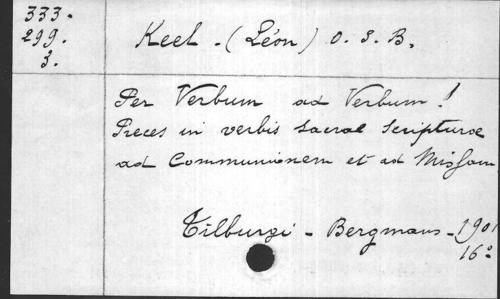 333.
299.
3.
Keel - (Léon) O. S. B.
Per Verbum ad Verbum!
Preces in verbis Sacrae Scripturae
ad Communionem et ad Missam
Tilburgi - Bergmans - 1901
16°